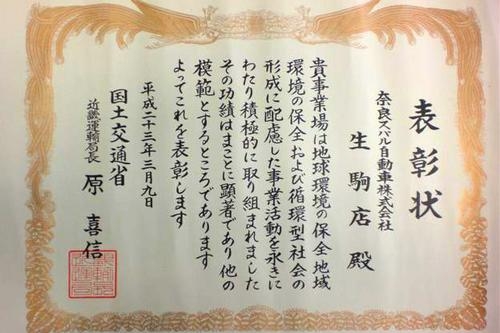 表彰状
奈良スバル自動車株式会社
生駒店殿
貴事業場は地球環境の保全地域
環境の保全および循環型社会の
形成に配慮した事業活動を永きに
わたり積極的に取り組まれました
その功績はまことに顕著であり他の
模範とするところであります
よってこれを表彰します
平成二十三年三月九日
国土交通省
近畿運輸局長 原喜信